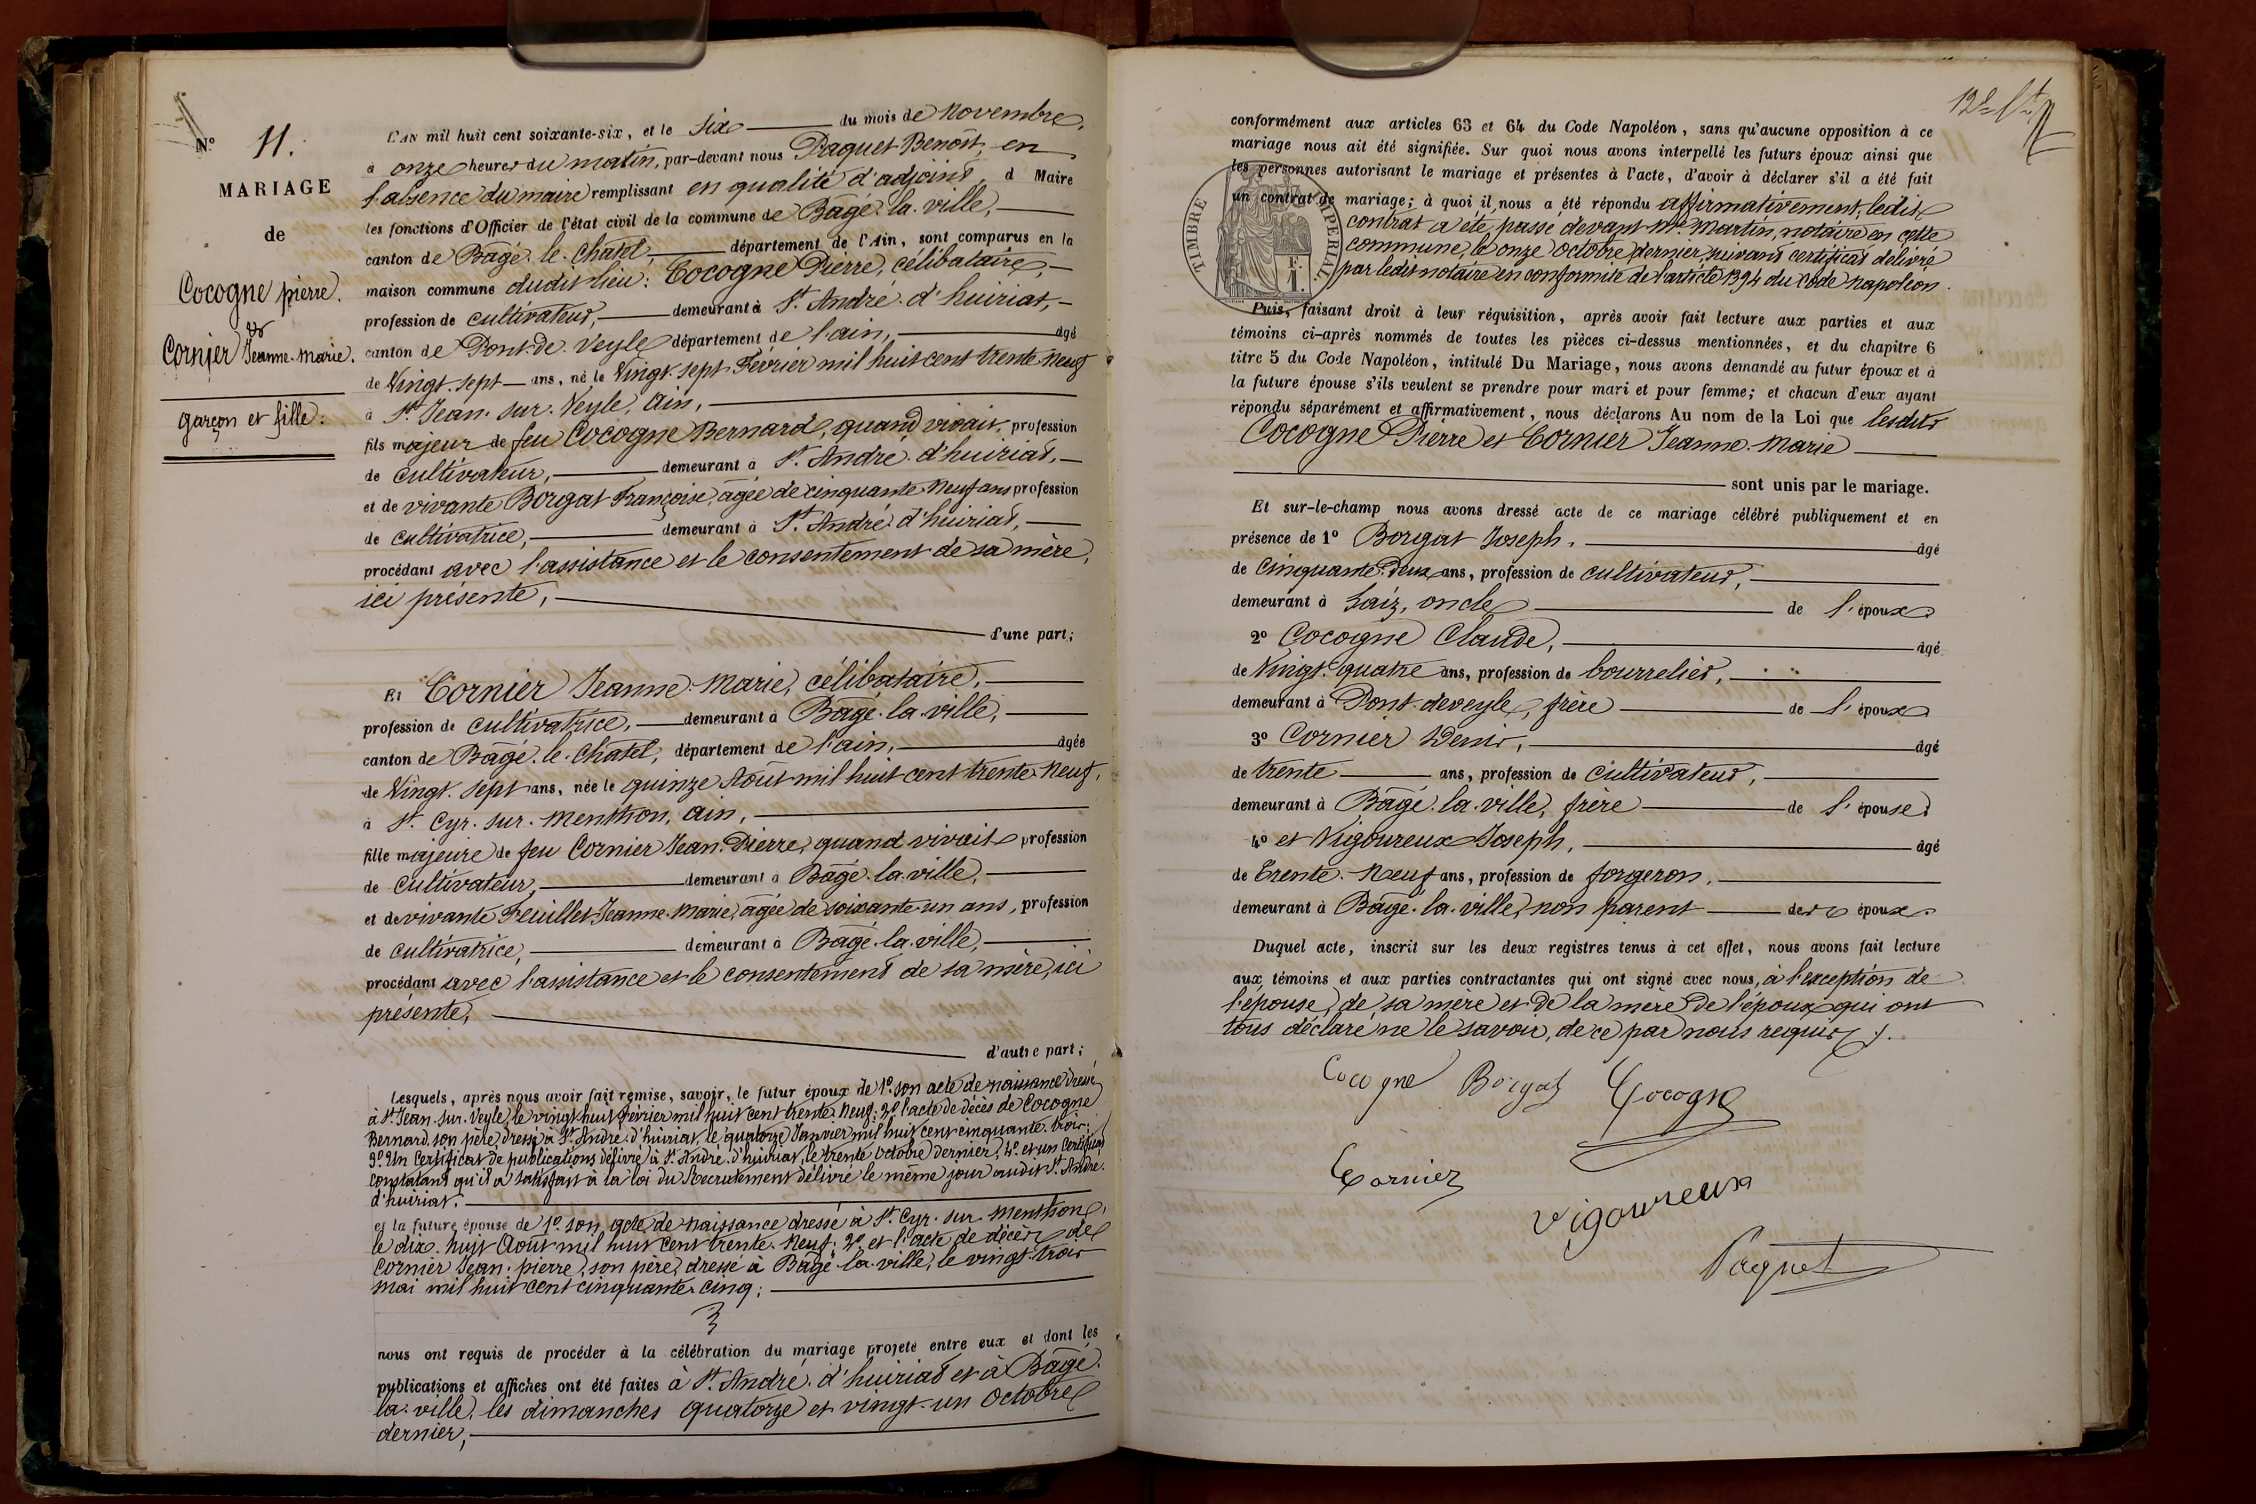 N° 11.
MARIAGE
de
Cocogne pierre.
et
Cornier Jeanne-Marie.
garçon et fille.
L'AN mil huit cent soixante-six, et le Six du mois de Novembre,
à onze heures du matin, par-devant nous Paquet Benoit, en
l'absence du maire remplissant en qualité d'adjoint, d Maire
les fonctions d'Officier de l'état civil de la commune de Bâgé-la-ville,
canton de Bâgé-le-Chatel, département de l'Ain, sont comparus en la
maison commune dudit lieu: Cocogne Pierre, célibataire,
profession de cultivateur, demeurant à St. André-d'huiriat,
canton de Pont-de-Veyle département de l'ain, âgé
de Vingt-sept ans, né le Vingt-sept Février mil huit cent trente-neuf
à St. Jean-sur-Veyle, Ain,
fils majeur de feu Cocogne Bernard, quand vivait profession
de cultivateur, demeurant à St. André-d'huiriat,
et de vivante Borgat Françoise, âgée de cinquante-neuf ans profession
de cultivatrice, demeurant à St. André-d'huiriat,
procédant avec l'assistance et le consentement de sa mère,
ici présente,
d'une part;
Et Cornier Jeanne-Marie, célibataire,
profession de cultivatrice, demeurant à Bâgé-la-ville,
canton de Bâgé-le-Chatel, département de l'ain, âgée
de Vingt-sept ans, née le quinze Août mil huit cent trente-neuf,
à St. Cyr-sur-Menthon, ain,
fille majeure de feu Cornier Jean-Pierre, quand vivait profession
de cultivateur, demeurant à Bâgé-la-ville,
et de vivante Feuillet Jeanne-Marie, âgée de soixante-un ans, profession
de cultivatrice, demeurant à Bâgé-la-ville,
procédant avec l'assistance et le consentement de sa mère, ici
présente,
d'autre part;
Lesquels, après nous avoir fait remise, savoir, le futur époux de 1° son acte de naissance dressé
à St. Jean-sur-Veyle, le vingt-huit février mil huit cent trente-neuf; 2° l'acte de décès de Cocogne
Bernard, son père, dressé à St. André-d'huiriat, le quatorze Janvier mil huit cent cinquante-trois;
3° Un Certificat de publications délivré à St. André-d'huiriat, le trente octobre dernier, 4° et un Certificat
constatant qu'il a satisfait à la loi du Recrutement délivré le même jour audit St. André-
d'huiriat.
et la future épouse de 1° son acte de naissance dressé à St. Cyr-sur-Menthon,
le dix-huit Août mil huit cent trente-neuf; 2° et l'acte de décès de
Cornier Jean-pierre, son père, dressé à Bâgé-la-ville, le vingt-trois
mai mil huit cent cinquante-cinq;
nous ont requis de procéder à la célébration du mariage projeté entre eux et dont les
publications et affiches ont été faites à St. André-d'huiriat et à Bâgé-
la-ville, les dimanches quatorze et vingt-un Octobre
dernier,
conformément aux articles 63 et 64 du Code Napoléon, sans qu'aucune opposition à ce
mariage nous ait été signifiée. Sur quoi nous avons interpellé les futurs époux ainsi que
les personnes autorisant le mariage et présentes à l'acte, d'avoir à déclarer s'il a été fait
un contrat de mariage; à quoi il nous a été répondu affirmativement, ledit
contrat a été passé devant Me. Martin, notaire en cette
commune, le onze octobre dernier, suivant certificat délivré
par ledit notaire en conformité de l'article 1394 du Code napoléon.
TIMBRE IMPÉRIAL
F.
1.
Puis, faisant droit à leur réquisition, après avoir fait lecture aux parties et aux
témoins ci-après nommés de toutes les pièces ci-dessus mentionnées, et du chapitre 6
titre 5 du Code Napoléon, intitulé Du Mariage, nous avons demandé au futur époux et à
la future épouse s'ils veulent se prendre pour mari et pour femme; et chacun d'eux ayant
répondu séparément et affirmativement, nous déclarons Au nom de la Loi que lesdits
Cocogne Pierre et Cornier Jeanne-Marie
sont unis par le mariage.
Et sur-le-champ nous avons dressé acte de ce mariage célébré publiquement et en
présence de 1° Borgat Joseph, âgé
de Cinquante-deux ans, profession de cultivateur,
demeurant à Laiz, oncle de l'époux
2° Cocogne Claude, âgé
de Vingt-quatre ans, profession de bourrelier,
demeurant à Pont-deveyle, frère de l'époux
3° Cornier Denis, âgé
de trente ans, profession de cultivateur,
demeurant à Bâgé-la-ville, frère de l'épouse
4° et Vigoureux Joseph, âgé
de Trente-Neuf ans, profession de forgeron,
demeurant à Bâgé-la-ville, non parent des époux
Duquel acte, inscrit sur les deux registres tenus à cet effet, nous avons fait lecture
aux témoins et aux parties contractantes qui ont signé avec nous, à l'exception de
l'épouse, de sa mère et de la mère de l'époux qui ont
tous déclaré ne le savoir, de ce par nous requis.
Cocogne Borgat Cocogne
Cornier
Vigoureux
Paquet